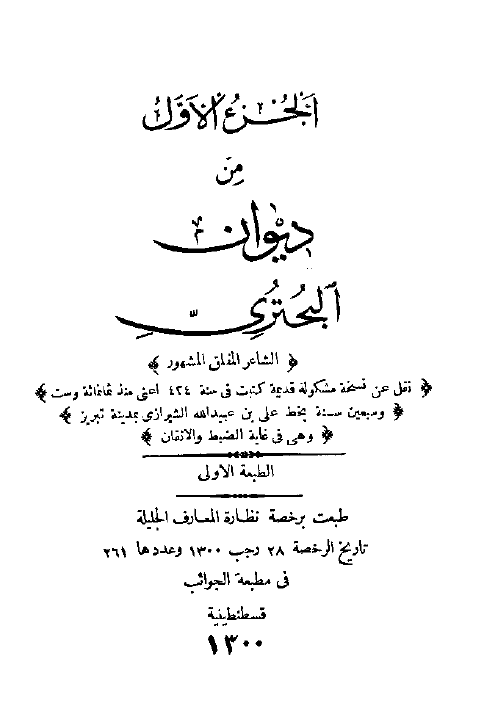 اَلْجُزءُ الأَوَّلُ
مِنْ
دِيْوان
اَلْبُحْتُرِيّ
﴿ الشاعر المفلق المشهور ﴾
﴿ نقل عن نسخة مشكولة قديمة كتبت فى سنة ٤٢٤ اعنى منذ ثمانمائة وست ﴾
﴿ وسبعين سنة بخط على بن عبيدالله الشيرازى بمدينة تبريز ﴾
﴿ وهى فى غاية الضبط والاتقان ﴾
الطبعة الاولى
طبعت برخصة نظارة المعارف الجليلة
تاريخ الرخصة ٢٨ رجب ١٣٠٠ وعددها ٢٦١
فى مطبعة الجوائب
قسطنطينية
١٣٠٠